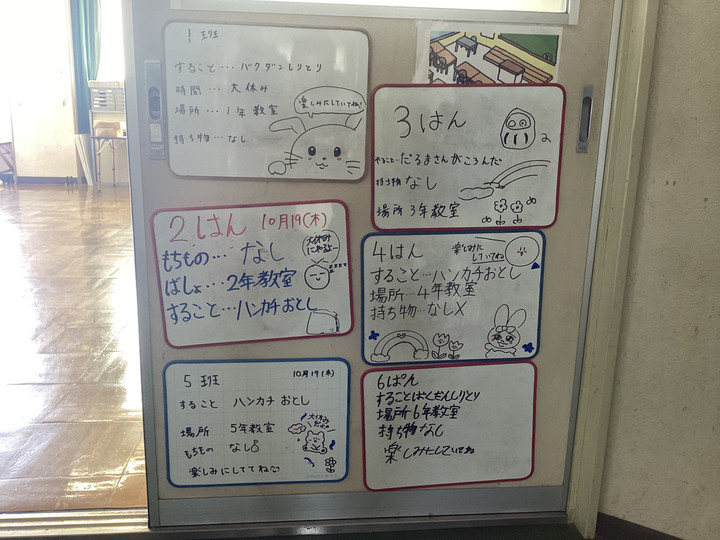 1 班
すること…バクダンしりとり
時間… 大休み
場所… 1年教室
持ち物…なし
楽しみにしていてね!
3はん
やること…だるまさんがころんだ
持ち物 なし
場所 3年教室
2はん 10月19(木)
もちもの… なし
ばしょ… 2年教室
すること…ハンカチおとし
大休み
にやるよー
zzzz
4はん
楽しみに
していてね
すること…ハンカチおとし
場所…4年教室
持ち物…なし✕
5 班 10月19(木)
すること ハンカチ おとし
場所 5年教室
もちもの なし
楽しみにしててね
大休み
だよ
6ぱん
することばくだんしりとり
場所6年教室
持ち物なし
楽しみにしていてね